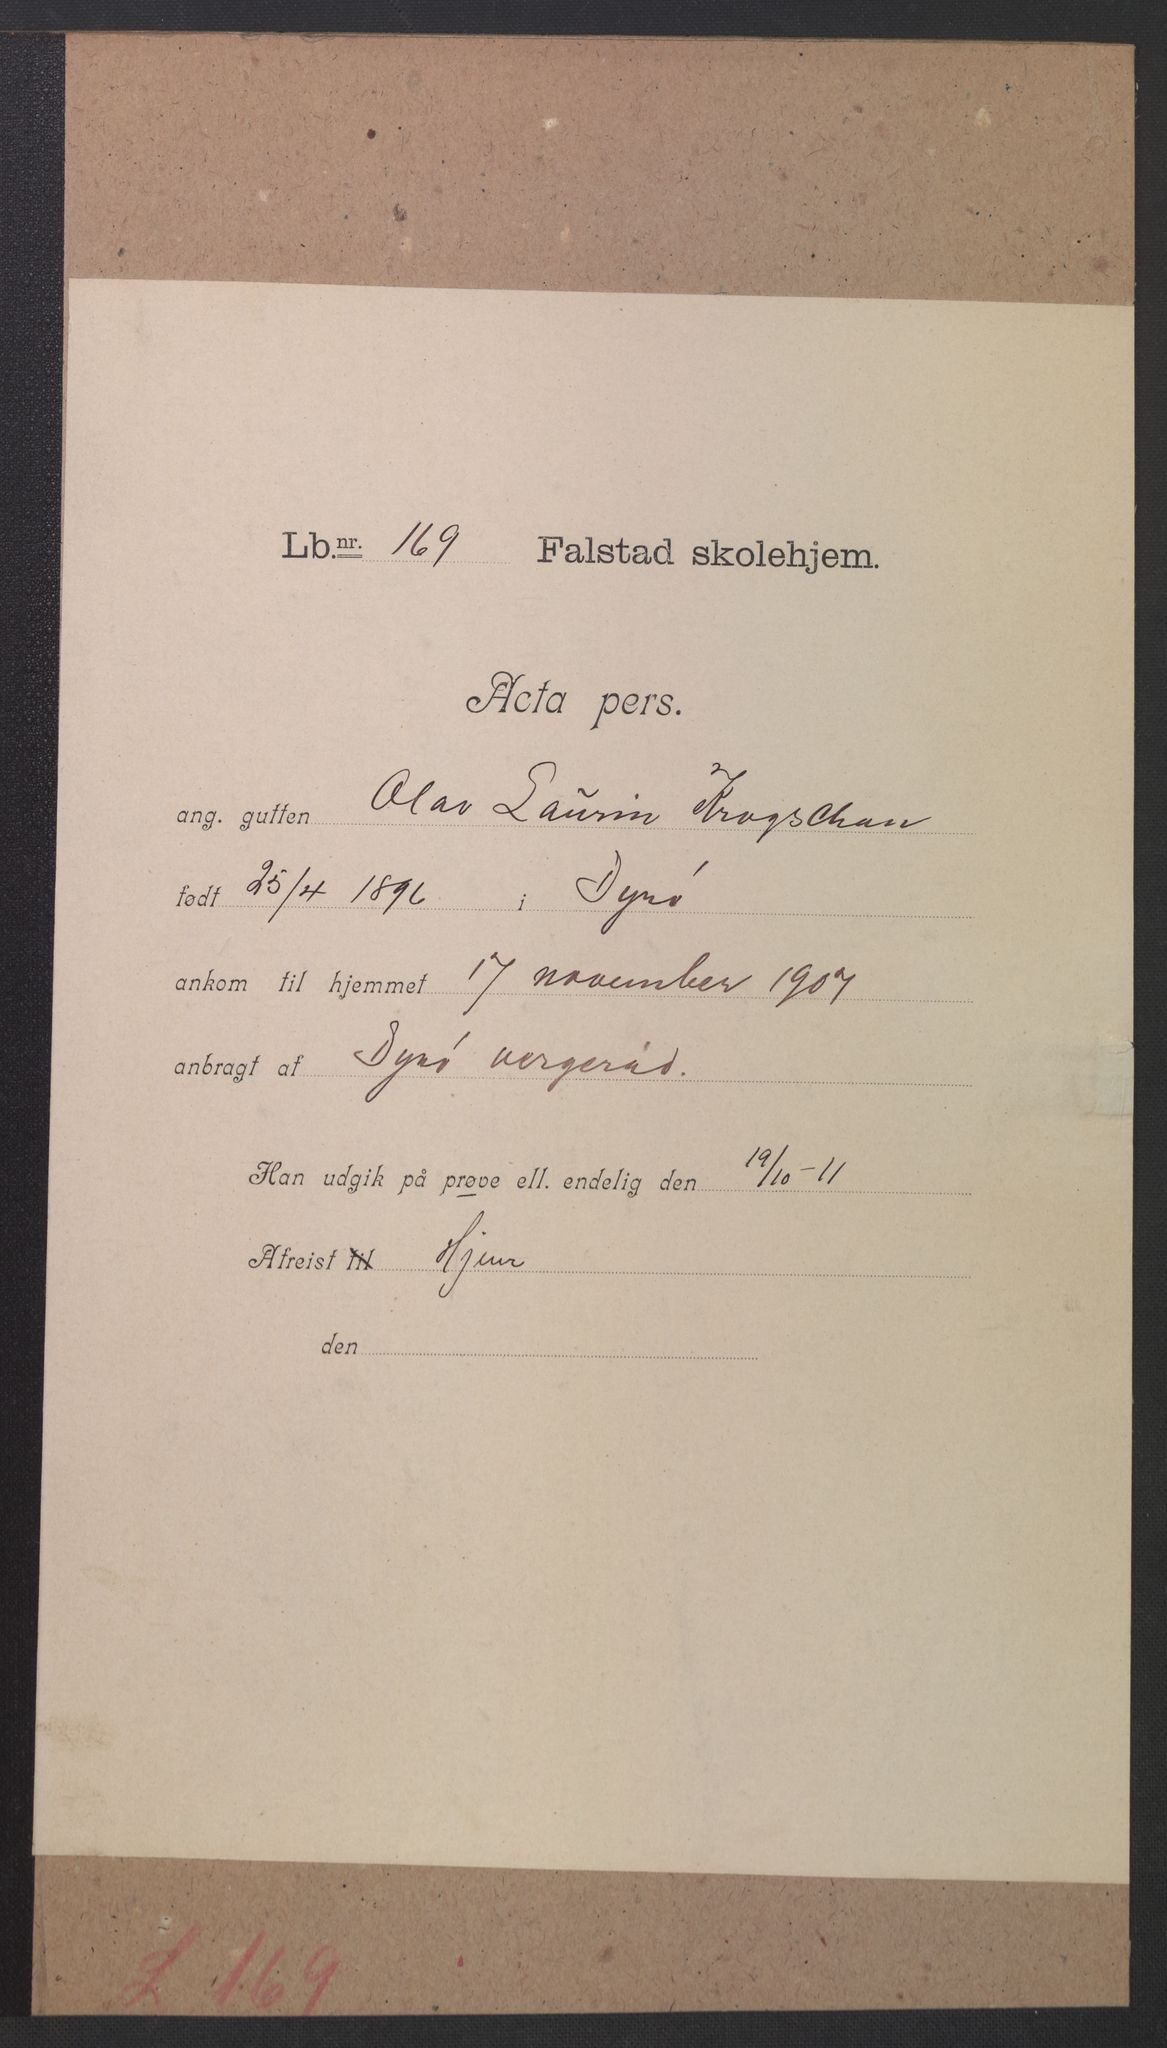 Lb.nr. 169 Falstad skolehjem.
Acta pers.
ang. gutten Olav Laurin Krogschau
født 25/4 1896 i Dyrö
ankom til hjemmet 17 november 1907
anbragt af Dyrö vergeråd.
Han udgik på prøve ell. endelig den 19/10-11
Afreist til Hjem
den
L 169